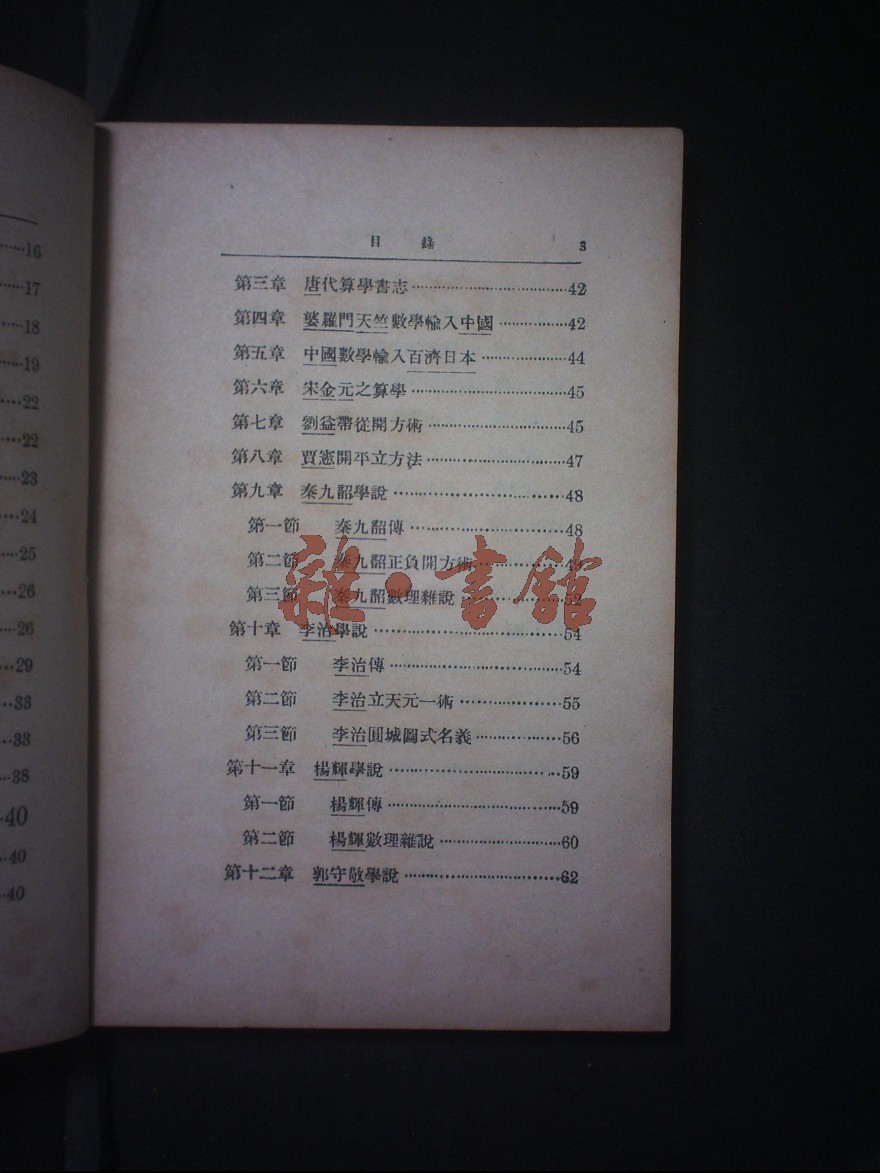 16
17
18
19
22
22
23
24
25
26
26
29
33
33
38
40
40
40
目錄 3
第三章 唐代算學書志 42
第四章 婆羅門天竺數學輸入中國 42
第五章 中國數學輸入百濟日本 44
第六章 宋金元之算學 45
第七章 劉益帶從開方術 45
第八章 賈憲開平立方法 47
第九章 秦九韶學說 48
第一節 秦九韶傳 48
第二節 秦九韶正負開方術 49
第三節 秦九韶數理雜說 52
第十章 李治學說 54
第一節 李治傳 54
第二節 李治立天元一術 55
第三節 李治圓城圖式名義 56
第十一章 楊輝學說 59
第一節 楊輝傳 59
第二節 楊輝數理雜說 60
第十二章 郭守敬學說 62
雜·書館